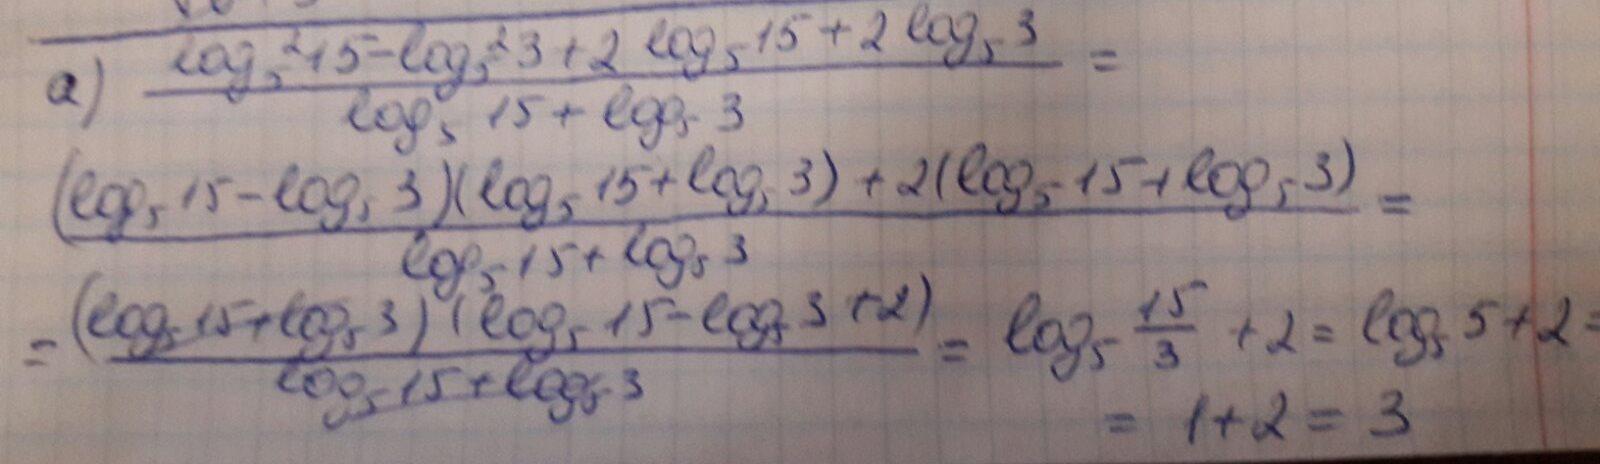 a) log₅²15-log₅²3+2 log₅15+2 log₅3 =
log₅ 15+log₅ 3
(log₅ 15-log₅ 3)(log₅ 15+log₅ 3)+2(log₅ 15+log₅ 3) =
log₅ 15+log₅ 3
= (log₅ 15+log₅ 3)(log₅ 15-log₅ 3+2) = log₅ 15/3 +2= log₅ 5+2=
log₅ 15+log₅ 3
= 1+2= 3